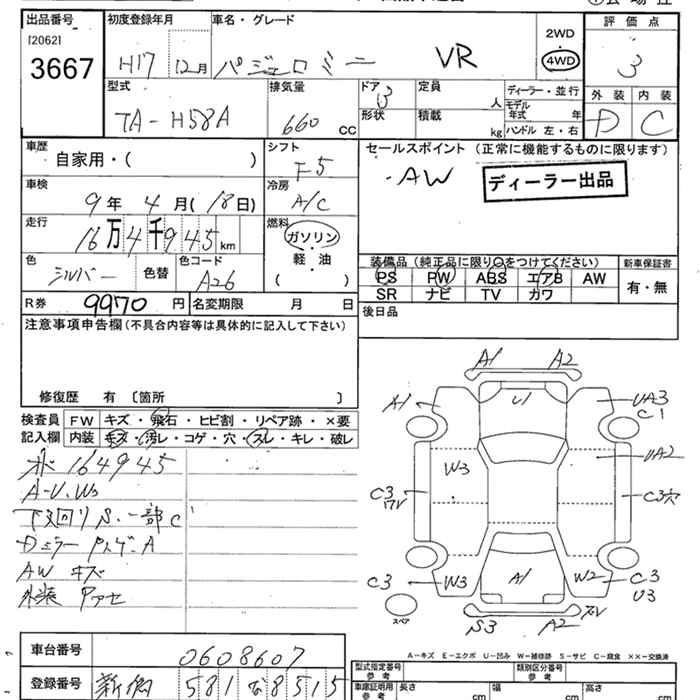 出品番号 初度登録年月 車名・グレード 評価点
[2062]
3667 H17 12月 パジェロミニ VR 2WD 4WD 3
型式 排気量 ドア 定員 ディーラー・並行 外装 内装
TA-H58A 660 CC 3 人 モデル年式 年 D C
形状 積載 kg ハンドル 左・右
車歴 シフト セールスポイント (正常に機能するものに限ります)
自家用・( ) F5 ・AW ディーラー出品
車検 冷房
9年 4月 (18日) A/C
走行 燃料
16万4千945km ガソリン
軽・油
( )
色 色替 色コード
シルバー A26
装備品 (純正品に限り○をつけてください) 新車保証書
PS PW ABS エアB AW 有・無
SR ナビ TV カワ
R券 9970円 名変期限 月 日
後日品
注意事項申告欄(不具合内容等は具体的に記入して下さい)
修復歴 有 〔箇所 〕
検査員記入欄 FW キズ・飛石・ヒビ割・リペア跡・×要
内装 キズ・汚レ・コゲ・穴・スレ・キレ・破レ
164945
A-U.W3
下廻りS.一部C
Dミラー A
AW キズ
外装
A1 A2
A1 U1 UA3
C1
W3 UA2
C3 C3穴
C3 W3 A1 W2 C3
U3
スペア S3 A2
A-キズ E-エクボ U-凹み W-補修跡 S-サビ C-腐食 ××-交換済
車台番号 0608607
登録番号 新潟 581 な 8515
型式指定番号 参考 類別区分番号 参考
車庫証明用 参考 長さ cm 幅 cm 高さ cm